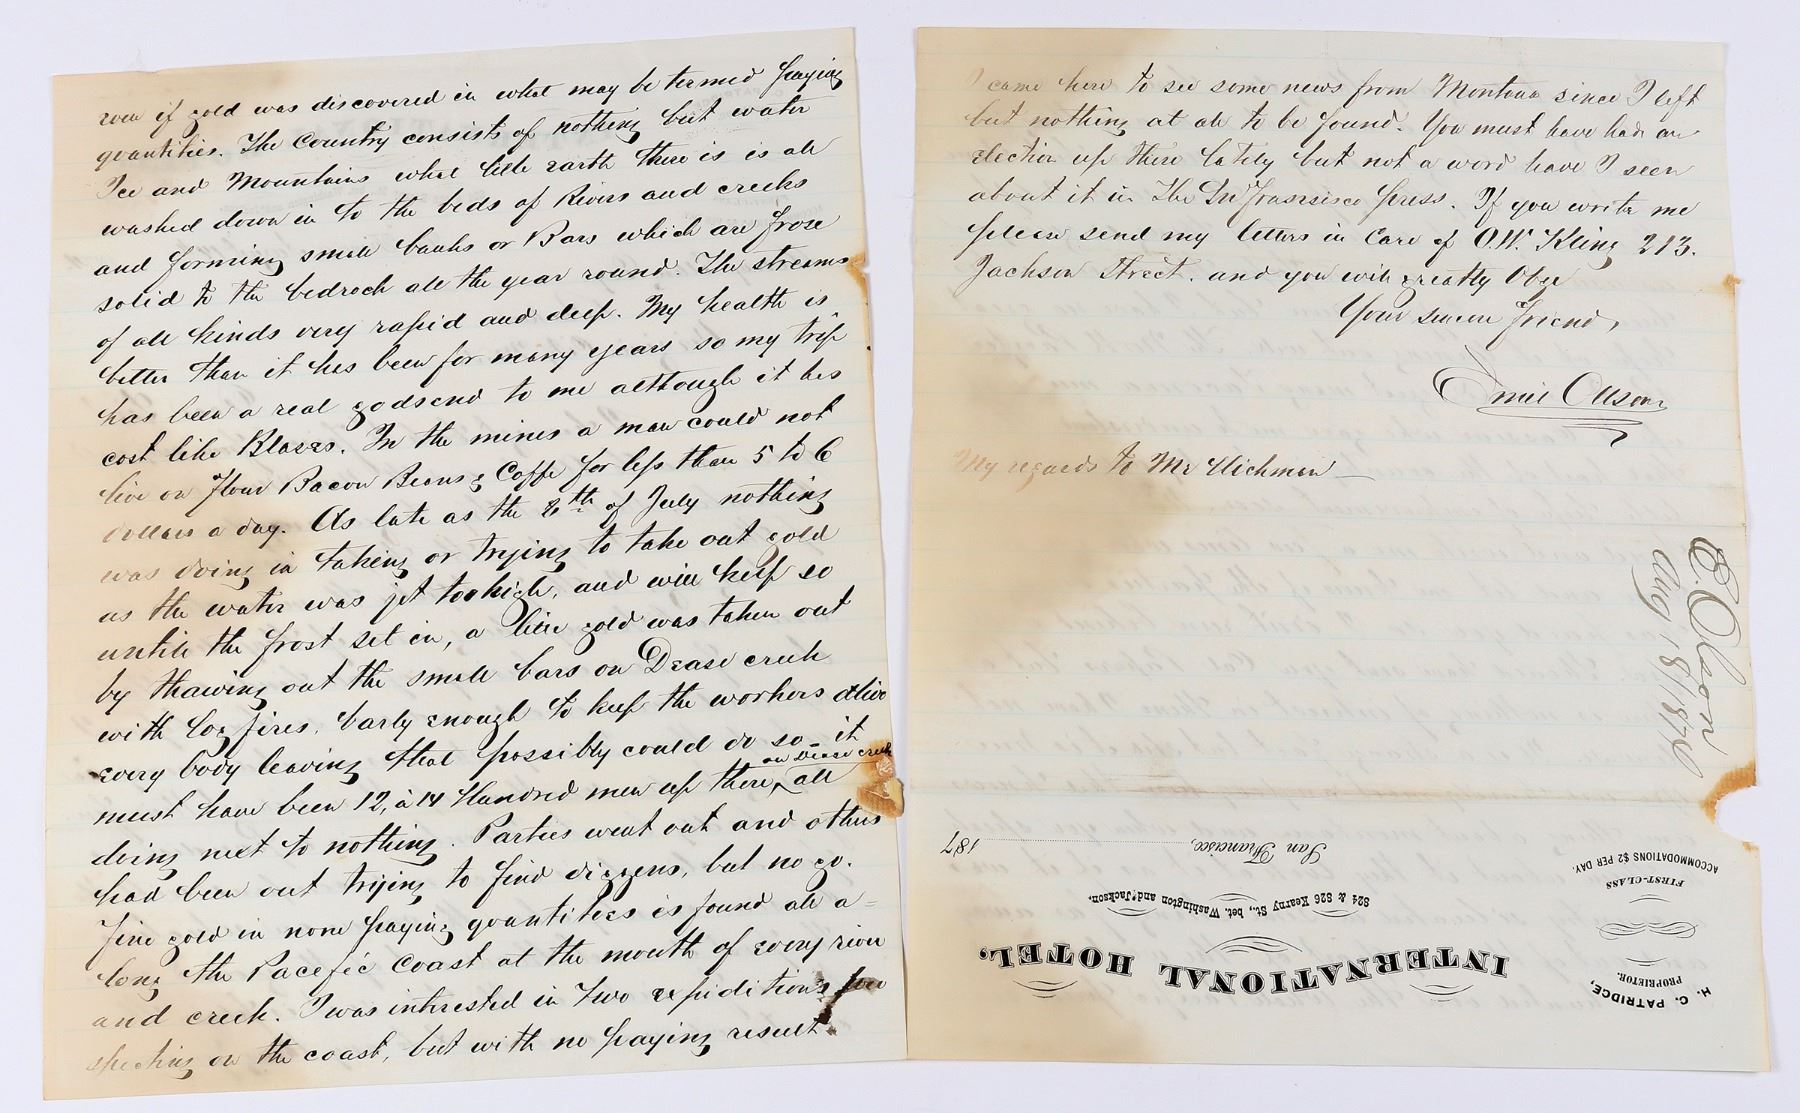 even if gold was discovered in what may be termed paying
quantities. The Country consists of nothing but water
Ice and Mountains what little earth there is is all
washed down in to the beds of Rivers and creeks
and forming small banks or Bars which are frose
solid to the bedrock all the year round. The streams
of all kinds very rapid and deep. My health is
better than it has been for many years so my trip
has been a real godsend to me although it has
cost like Blazes. In the mines a man could not
live on Flour Bacon Beans & Coffe for less than 5 to 6
dollars a day. As late as the 8th of July nothing
was doing in taking or trying to take out gold
as the water was jet too high, and will keep so
untill the frost set in, a little gold was taken out
by thawing out the small bars on Dease creek
with log fires, barly enough to keep the workers alive
every body leaving that possibly could do so - it
must have been 12, à 14 Hundred men up there, on Dease creek all
doing next to nothing. Parties went out and others
had been out trying to find diggens, but no go.
Fine gold in none paying quantities is found all a=
long the Pacefic Coast at the mouth of every river
and creek. I was intrested in two expiditions pro
specting on the coast, but with no paying result.
I came here to see some news from Montana since I left
but nothing at all to be found. You must have had an
election up there lately but not a word have I seen
about it in The Sn Fransisco press. If you write me
please send my letters in Care of O.W. Kling 213.
Jackson Street. and you will greatly Obige
Your sincere friend,
Emil Ollson
My regards to Mr Hickman
E. Olson
Aug 18/1876
H. C. PATRIDGE,
PROPRIETOR.
FIRST-CLASS
ACCOMMODATIONS $2 PER DAY.
INTERNATIONAL HOTEL,
824 & 826 Kearny St., bet. Washington and Jackson,
San Francisco, 187